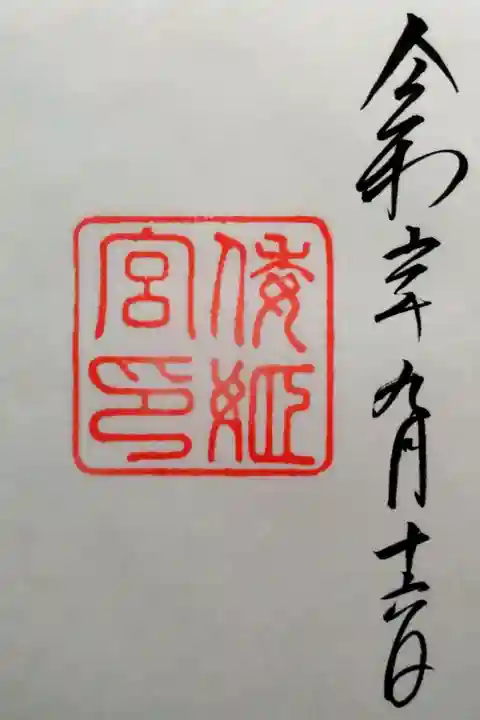 令和六年九月十六日
倭姫
宮印